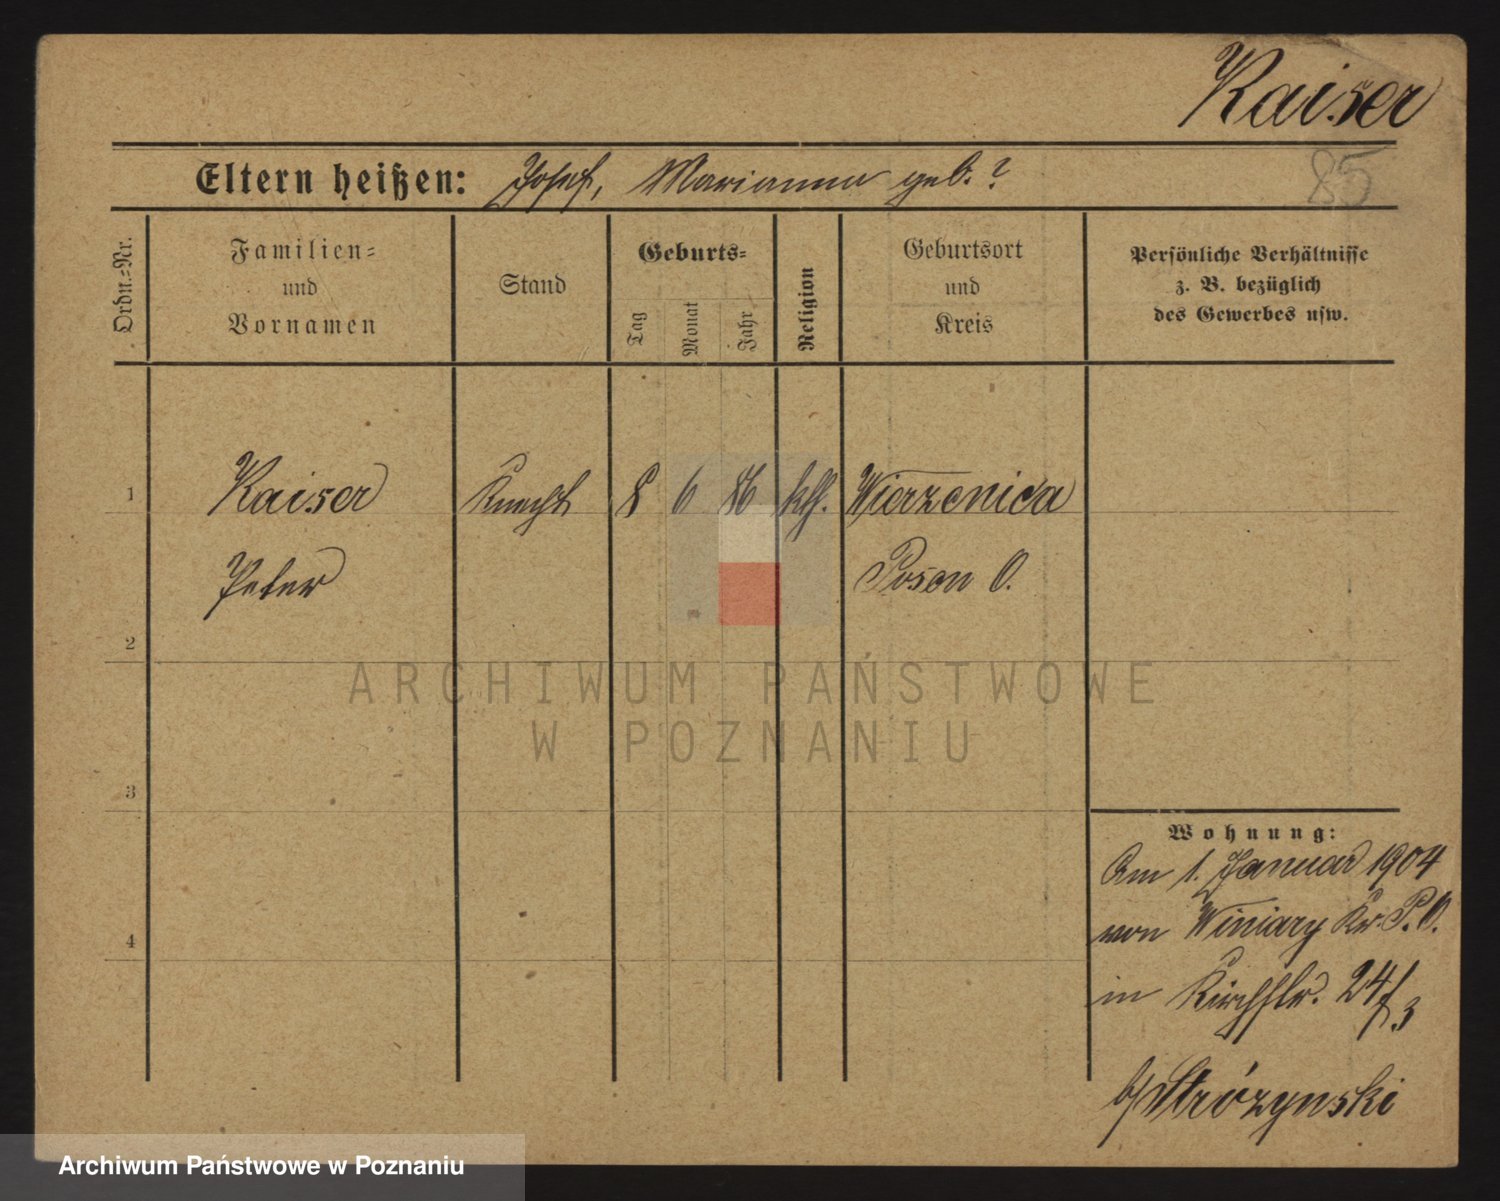 Kaiser
85
Eltern heißen: Josef, Marianna geb. ?
Ordn.=Nr.
Familien=
und
Vornamen
Stand
Geburts=
Tag
Monat
Jahr
Religion
Geburtsort
und
Kreis
Persönliche Verhältnisse
z. B. bezüglich
des Gewerbes usw.
1 Kaiser Knecht 8 6 86 kth. Wierzenica
Peter Posen O.
2
3
4
Wohnung:
Am 1. Januar 1904
von Winiary Kr. P. O.
in Kirchstr. 24/3
b/Stróżynski
ARCHIWUM PAŃSTWOWE
W POZNANIU
Archiwum Państwowe w Poznaniu